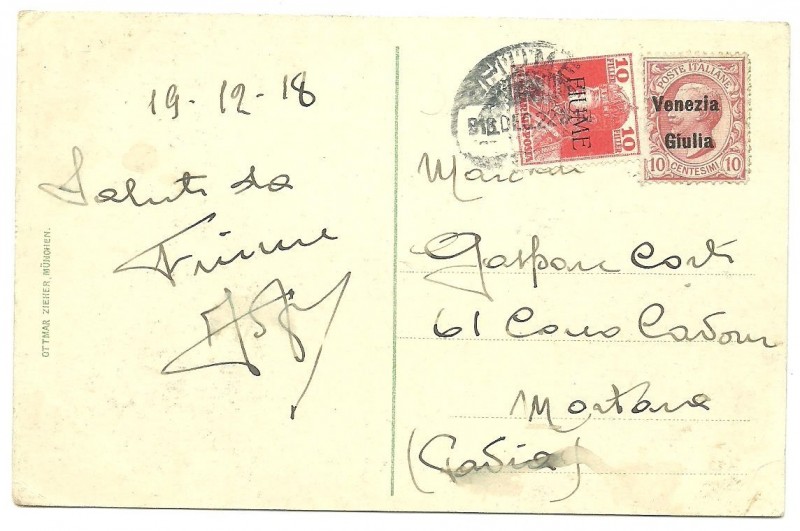 19-12-18
Saluti da
Fiume
OTTMAR ZIEHER, MÜNCHEN.
FIUME
918.DEC.22
10
FILLER
FIUME
10
FILLER
POSTE ITALIANE
Venezia
Giulia
10 CENTESIMI 10
Gaspare Corti
61 Corso Cavour
Mortara
(Pavia)